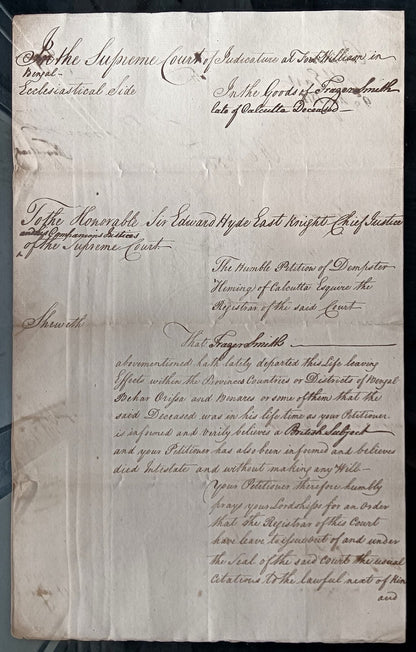 In the Supreme Court of Judicature at Fort William in
Bengal
Ecclesiastical Side
In the Goods of Frazer Smith
late of Calcutta Deceased
To the Honorable Sir Edward Hyde East Knight Chief Justice
and his Companions Justices
of the Supreme Court
The Humble Petition of Dempster
Heming of Calcutta Esquire the
Registrar of the said Court
Sheweth
That Frazer Smith
abovementioned hath lately departed this Life leaving
Effects within the Provinces Countries or Districts of Bengal
Behar Orissa and Benares or some of them that the
said Deceased was in his life time as your Petitioner
is informed and verily believes a British Subject
and your Petitioner has also been informed and believes
died Intestate and without making any Will
Your Petitioner therefore humbly
prays your Lordships for an Order
that the Registrar of this Court
have leave to issue out of and under
the Seal of the said Court the usual
Citations to the lawful next of Kin
and